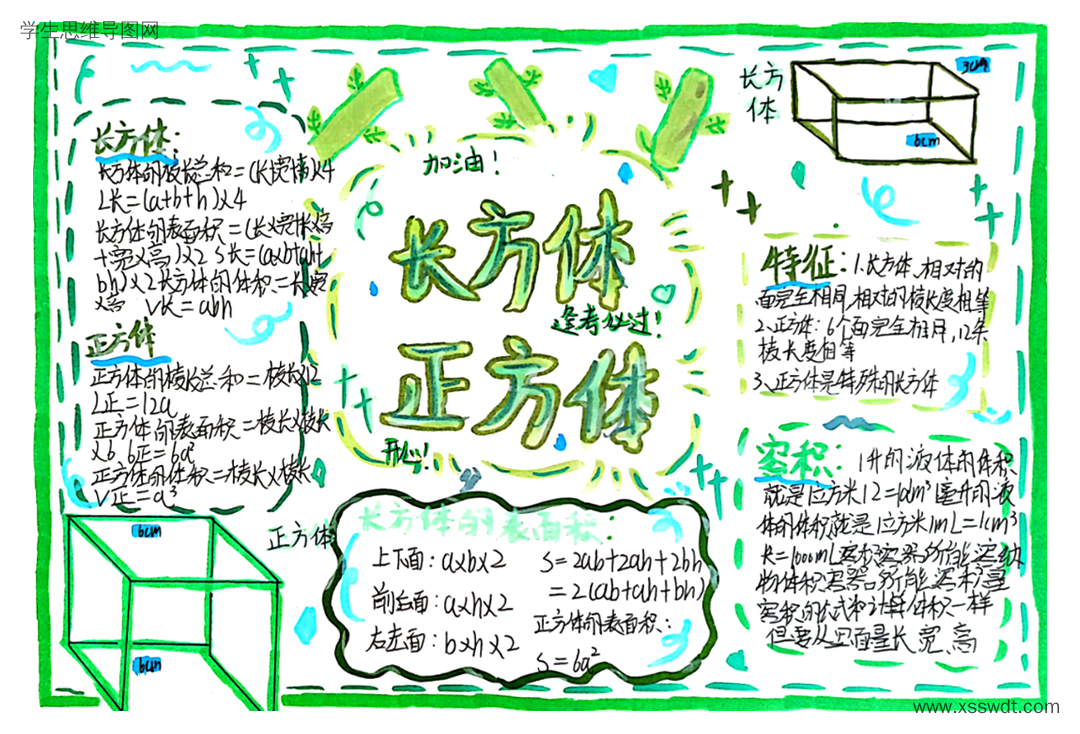 学生思维导图网
长方体:
长方体的棱长总和=(长宽高)×4
L长=(a+b+h)×4
长方体的表面积=(长×宽+长×高
+宽×高)×2 S长=(a×b+ah+
bh)×2长方体的体积=长宽
×高 V长=abh
正方体
正方体的棱长总和=棱长×12
L正=12a
正方体的表面积=棱长×棱长
×6 6正=6a²
正方体的体积=棱长×棱长
V正=a³
6cm
6cm
正方体
加油!
长方体
逢考必过!
正方体
开心!
长方体的表面积:
上下面:a×b×2
前后面:a×h×2
右左面:b×h×2
S=2ab+2ah+2bh
=2(ab+ah+bh)
正方体的表面积:
S=6a²
长方
体
3cm
6cm
特征:1.长方体、相对的
面完全相同,相对的棱长度相等
2、正方体:6个面完全相同,12条
棱长度相等
3、正方体是特殊的长方体
容积:1升的液体的体积
就是1立方米12=1dm³ 1毫升的液
体的体积就是1立方米1mL=1cm³
=1000mL容积容器所能容纳
物体积容器所能容积量
容积的公式和计算体积一样
但要从里面量长、宽、高
www.xsswdt.com